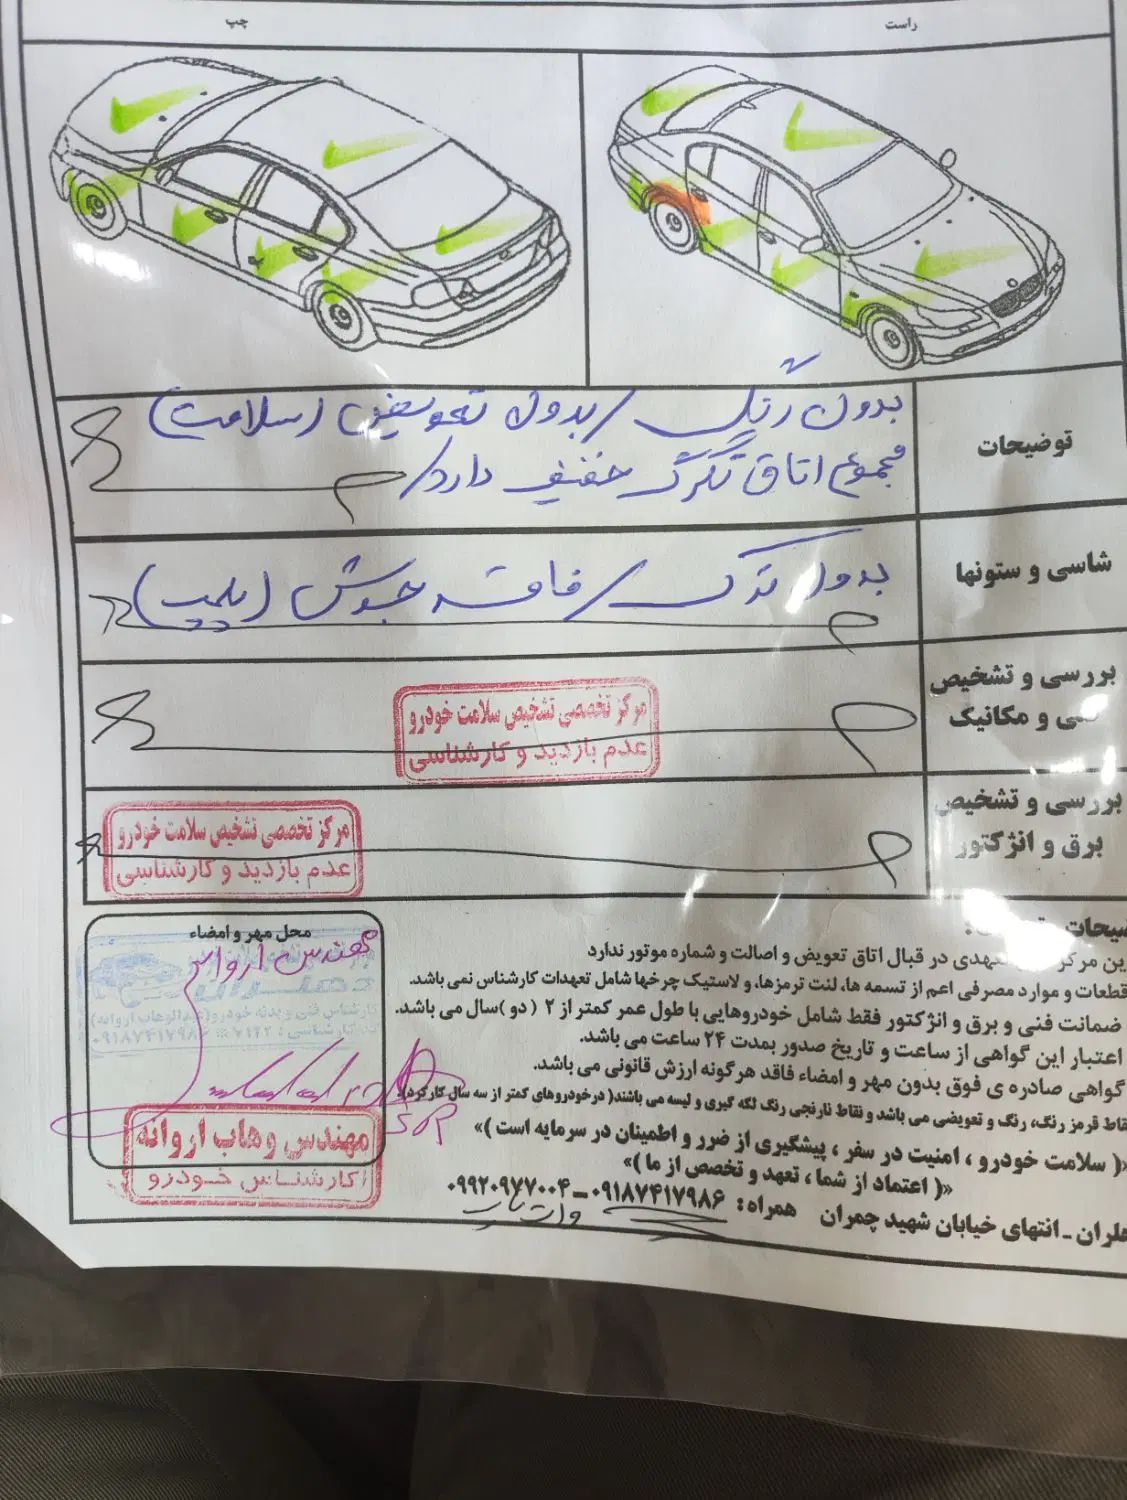 راست
چپ
توضیحات
بدون رنگ / بدون تعویض (سلامت)
مجموع اتاق تگرگ خفیف دارد/
شاسی و ستونها
بدون ترک / فاقد جوش (پلمپ)
بررسی و تشخیص
فنی و مکانیک
مرکز تخصصی تشخیص سلامت خودرو
عدم بازدید و کارشناسی
بررسی و تشخیص
برق و انژکتور
مرکز تخصصی تشخیص سلامت خودرو
عدم بازدید و کارشناسی
محل مهر و امضاء
مهندس اروانه
کارشناس فنی و بدنه خودرو(عبدالوهاب اروانه)
کد کارشناسی : ۷۱۲۲
۰۹۱۸۷۴۱۷۹۸۶
در قبال اتاق تعویض و اصالت و شماره موتور ندارد
قطعات و موارد مصرفی اعم از تسمه ها، لنت ترمزها، و لاستیک چرخها شامل تعهدات کارشناس نمی باشد.
ضمانت فنی و برق و انژکتور فقط شامل خودروهایی با طول عمر کمتر از ۲ ( دو )سال می باشد.
اعتبار این گواهی از ساعت و تاریخ صدور بمدت ۲۴ ساعت می باشد.
گواهی صادره ی فوق بدون مهر و امضاء فاقد هرگونه ارزش قانونی می باشد.
نقاط قرمز رنگ، رنگ و تعویضی می باشد و نقاط نارنجی رنگ لکه گیری و لیسه می باشند( درخودروهای کمتر از سه سال کارکرد).
«( سلامت خودرو ، امنیت در سفر ، پیشگیری از ضرر و اطمینان در سرمایه است )»
«( اعتماد از شما ، تعهد و تخصص از ما )»
انتهای خیابان شهید چمران همراه: ۰۹۱۸۷۴۱۷۹۸۶ - ۰۹۹۲۰۹۷۷۰۰۴
مهندس وهاب اروانه
کارشناس خودرو